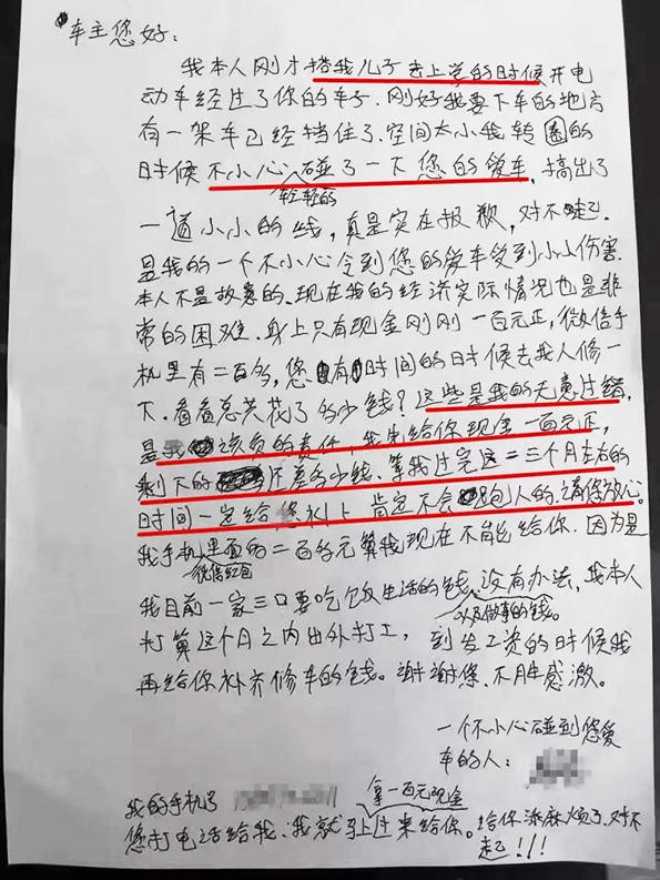 车主您好：
我本人刚才搭我儿子去上学的时候开电
动车经过了你的车子.刚好我要下车的地方
有一架车已经挡住了.空间太小我转圈的
时候不小心碰了一下您的爱车.搞出了
轻轻的
一道小小的线，真是实在报歉，对不起.
是我的一个不小心令到您的爱车受到小小伤害.
本人不是故意的、现在我的经济实际情况也是非
常的困难.身上只有现金刚刚一百元正，微信手
机里有二百多，您有时间的时候去找人修一
下.看看总共花了多少钱？这些是我的无意过错，
是我该负的责任，我先给你现金一百元正，
剩下的还差多少钱、等我过完这二三个月左右的
时间一定给您补上肯定不会跑人的.请你放心.
我手机里面的二百多元算我现在不能给你.因为是
微信红包
我目前一家三口要吃饭生活的钱，没有办法，我本人
以及做事的钱。
打算这个月之内出外打工，到发工资的时候我
再给你补齐修车的钱。谢谢您、不胜感激。
一个不小心碰到您爱
车的人：
我的手机号
拿一百元现金
您打电话给我、我就马上过来给你。给你添麻烦了、对不
起！！！